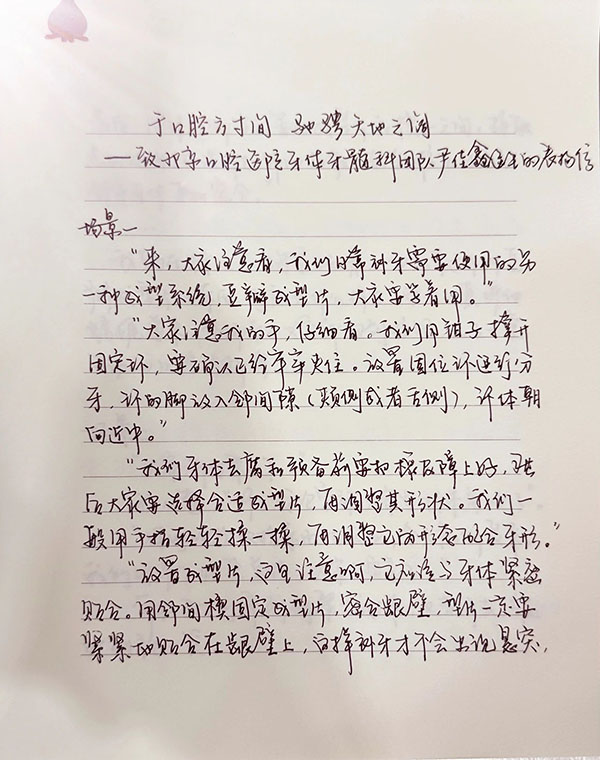 于口腔方寸间 驰骋天地之阔
——致北京口腔医院牙体牙髓科团队尹佳鑫医生的表扬信
场景一
“来，大家注意看，我们日常补牙需要使用的另
一种成型系统，豆瓣成型片，大家要学着用。”
“大家注意我的手，仔细看。我们用钳子撑开
固定环，要确认已经牢牢夹住。放置固位环进行分
牙，环的脚放入邻间隙（颊侧或者舌侧），环体朝
向近中。”
“我们牙体去腐和预备前要把橡皮障上好，然
后大家要选择合适成型片，再调整其形状。我们一
般用手指轻轻揉一揉，再调整它的形态配合牙形。”
“放置成型片，这里注意啊，它应该与牙体紧密
贴合。用邻间楔固定成型片，密合龈壁，型片一定要
紧紧地贴合在龈壁上，这样补牙才不会出现悬突，